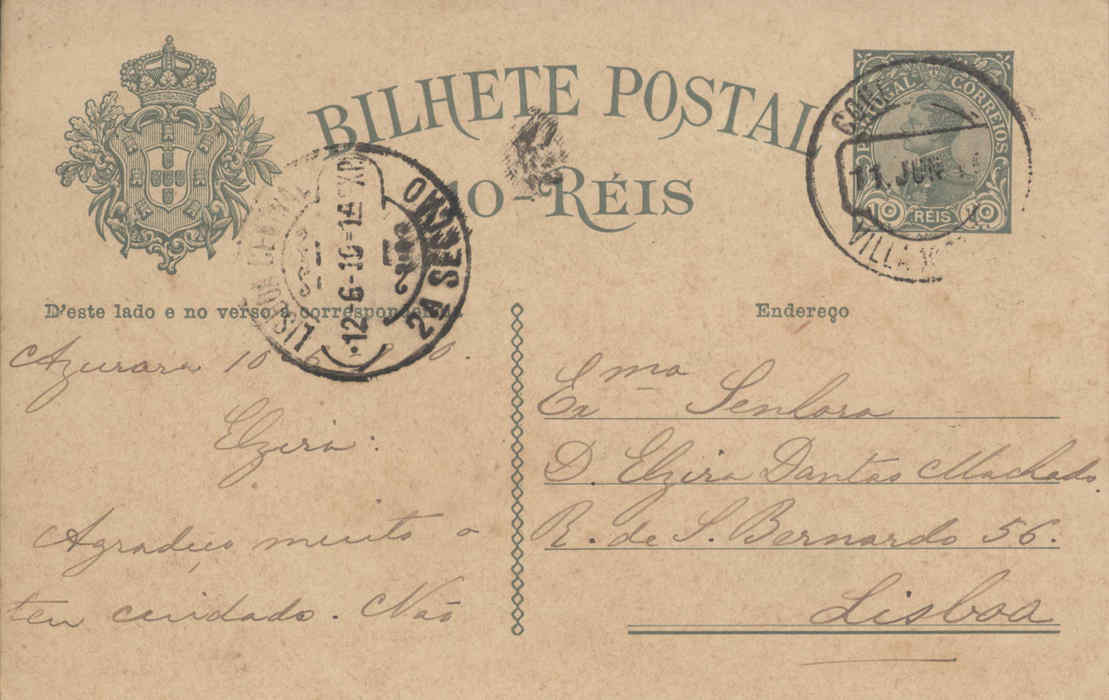 BILHETE POSTAL
10-RÉIS
PORTUGAL CORREIOS
10 RÉIS 10
11 JUN
VILLA
LISBOA CENTRAL
12-6-10-1A EXP
2A SECÇÃO
D'este lado e no verso a correspondencia
Endereço
Azurara 10
Elzira:
Agradeço muito o
teu cuidado. Não
Exma Senhora
D. Elzira Dantas Machado
R. de S. Bernardo 56.
Lisboa